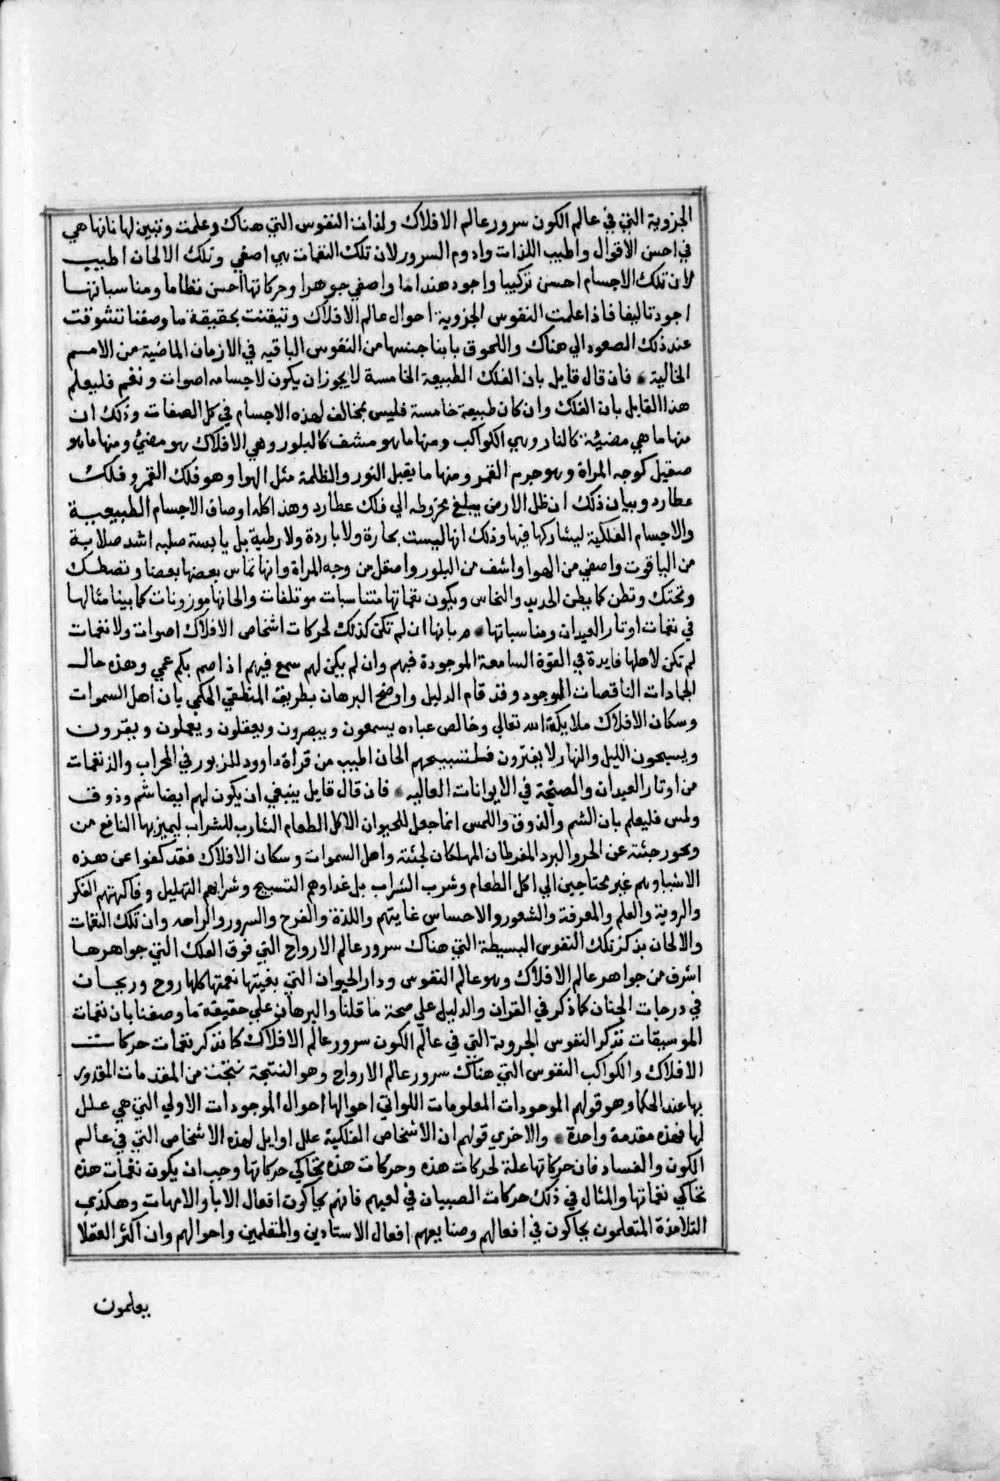 الجزوية التي في عالم الكون سرور عالم الافلاك ولذات النفوس التي هناك وعلمت وتبين لها بانها هي
في احسن الاقوال واطيب اللذات وادوم السرور لان تلك النغمات هي اصفي وتلك الالحان اطيب
لان تلك الاجسام احسن تركيبا واجود هنداما واصفي جوهرا وحركاتها احسن نظاما ومناسباتها
اجود تاليفا فاذا علمت النفوس الجزوية احوال عالم الافلاك وتيقنت بحقيقة ما وصفنا تشوقت
عند ذلك الصعود الي هناك واللحوق بابنا جنسها من النفوس الباقيه في الازمان الماضية من الامم
الخالية فان قال قايل بان الفلك الطبيعة الخامسة لا يجوز ان يكون لاجسامه اصوات ونغم فليعلم
هذا القايل بان الفلك وان كان طبيعة خامسة فليس بمخالف لهذه الاجسام في كل الصفات وذلك ان
منها ما هي مضيئة كالنار وهي الكواكب ومنها ما هو مشف كالبلور وهي الافلاك هو مضئ ومنها ما هو
صقيل كوجه المراة وهو جرم القمر ومنها ما يقبل النور والظلمة مثل الهوا وهو فلك القمر وفلك
عطارد وبيان ذلك ان ظل الارض يبلغ مخروطه الي فلك عطارد وهذا كله اوصاف الاجسام الطبيعية
والاجسام الفلكية ليشاركها فيها وذلك انها ليست بحارة ولا باردة ولا رطبة بل يابسة صلبه اشد صلابة
من الياقوت واصفي من الهوا واشف من البلور واصقل من وجه المراة وانها تماس بعضها بعضا وتصطك
وتحتك وتطن كما يطن الحديد والنحاس ويكون نغماتها متناسبات موتلفات والحانها موزونات كما بينا مثالها
في نغمات اوتار العيدان ومناسباتها بانها ان لم تكن كذلك لحركات اشخاص الافلاك اصوات ولا نغمات
لم تكن لاهلها فايدة في القوة السامعة الموجودة فيهم وان لم يكن لهم سمع فيهم اذا صم بكم عمي وهذه حال
الجمادات الناقصات الموجود وقد قام الدليل واوضح البرهان بطريق المنطقي الحكمي بان اهل السموات
وسكان الافلاك ملايكة الله تعالي وخالص عباده يسمعون ويبصرون ويعقلون ويعملون ويقرون
ويسبحون الليل والنهار لا يفترون فلتسبيحهم الحان اطيب من قراة داوود للزبور في المحراب والذ نغمات
من اوتار العيدان والصنجة في الايوانات العاليه فان قال قايل ينبغي ان يكون لهم ايضا شم وذوق
ولمس فليعلم بان الشم والذوق واللمس انما جعل للحيوان الاكل الطعام الشارب للشراب ليميز بها النافع من
ويحور جثته عن الحر والبرد المفرطان المهلكان لجثته واهل السموات وسكان الافلاك فقد كفوا عن هذه
الاشيا وهم غير محتاجين الي اكل الطعام وشرب الشراب بل غداوهم التسبيح وشرابهم التهليل وفاكهتهم الفكر
والروية والعلم والمعرفة والشعور والاحساس غايتهم واللذة والفرح والسرور والراحه وان تلك النغمات
والالحان يذكر تلك النفوس البسيطة التي هناك سرور عالم الارواح التي فوق الفلك التي جواهرها
اشرف من جواهر عالم الافلاك وهو عالم النفوس ودار الحيوان التي نعيمها كلها روح وريحان
في درجات الجنان كما ذكر في القران والدليل علي صحة ما قلنا والبرهان علي حقيقة ما وصفنا بان نغمات
الموسيقات تذكر النفوس الجزوية التي في عالم الكون سرور عالم الافلاك كما تذكر نغمات حركات
الافلاك والكواكب النفوس التي هناك سرور عالم الارواح وهو النتيجة نتجت من المقدمات المقدور
بها عند الحكما وهو قولهم الموجودات المعلومات اللواتي احوالها احوال الموجودات الاولي التي هي علل
لها فهذه مقدمة واحدة والاخري قولهم ان الاشخاص الفلكية علل اوايل لهذه الاشخاص التي في عالم
الكون والفساد فان حركاتها علة لحركات هذه وحركات هذه تحاكي حركاتها وجب ان يكون نغمات هذه
تحاكي نغماتها والمثال في ذلك حركات الصبيان في لعبهم فانهم يحاكون افعال الابا والامهات وهكذي
التلامذة المتعلمون يحاكون في افعالهم وصنايعهم افعال الاستادين والمتعلمين واحوالهم وان اكثر العقلا
يعلمون